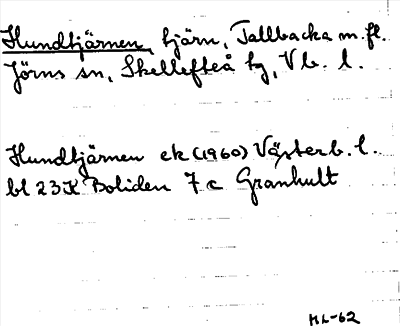 Hundtjärnen, tjärn, Tallbacka m. fl.
Jörns sn, Skellefteå tg, Vb. l.
Hundtjärnen ek (1960) Västerb. l.
bl 23K Boliden 7 c Granhult
ML-62